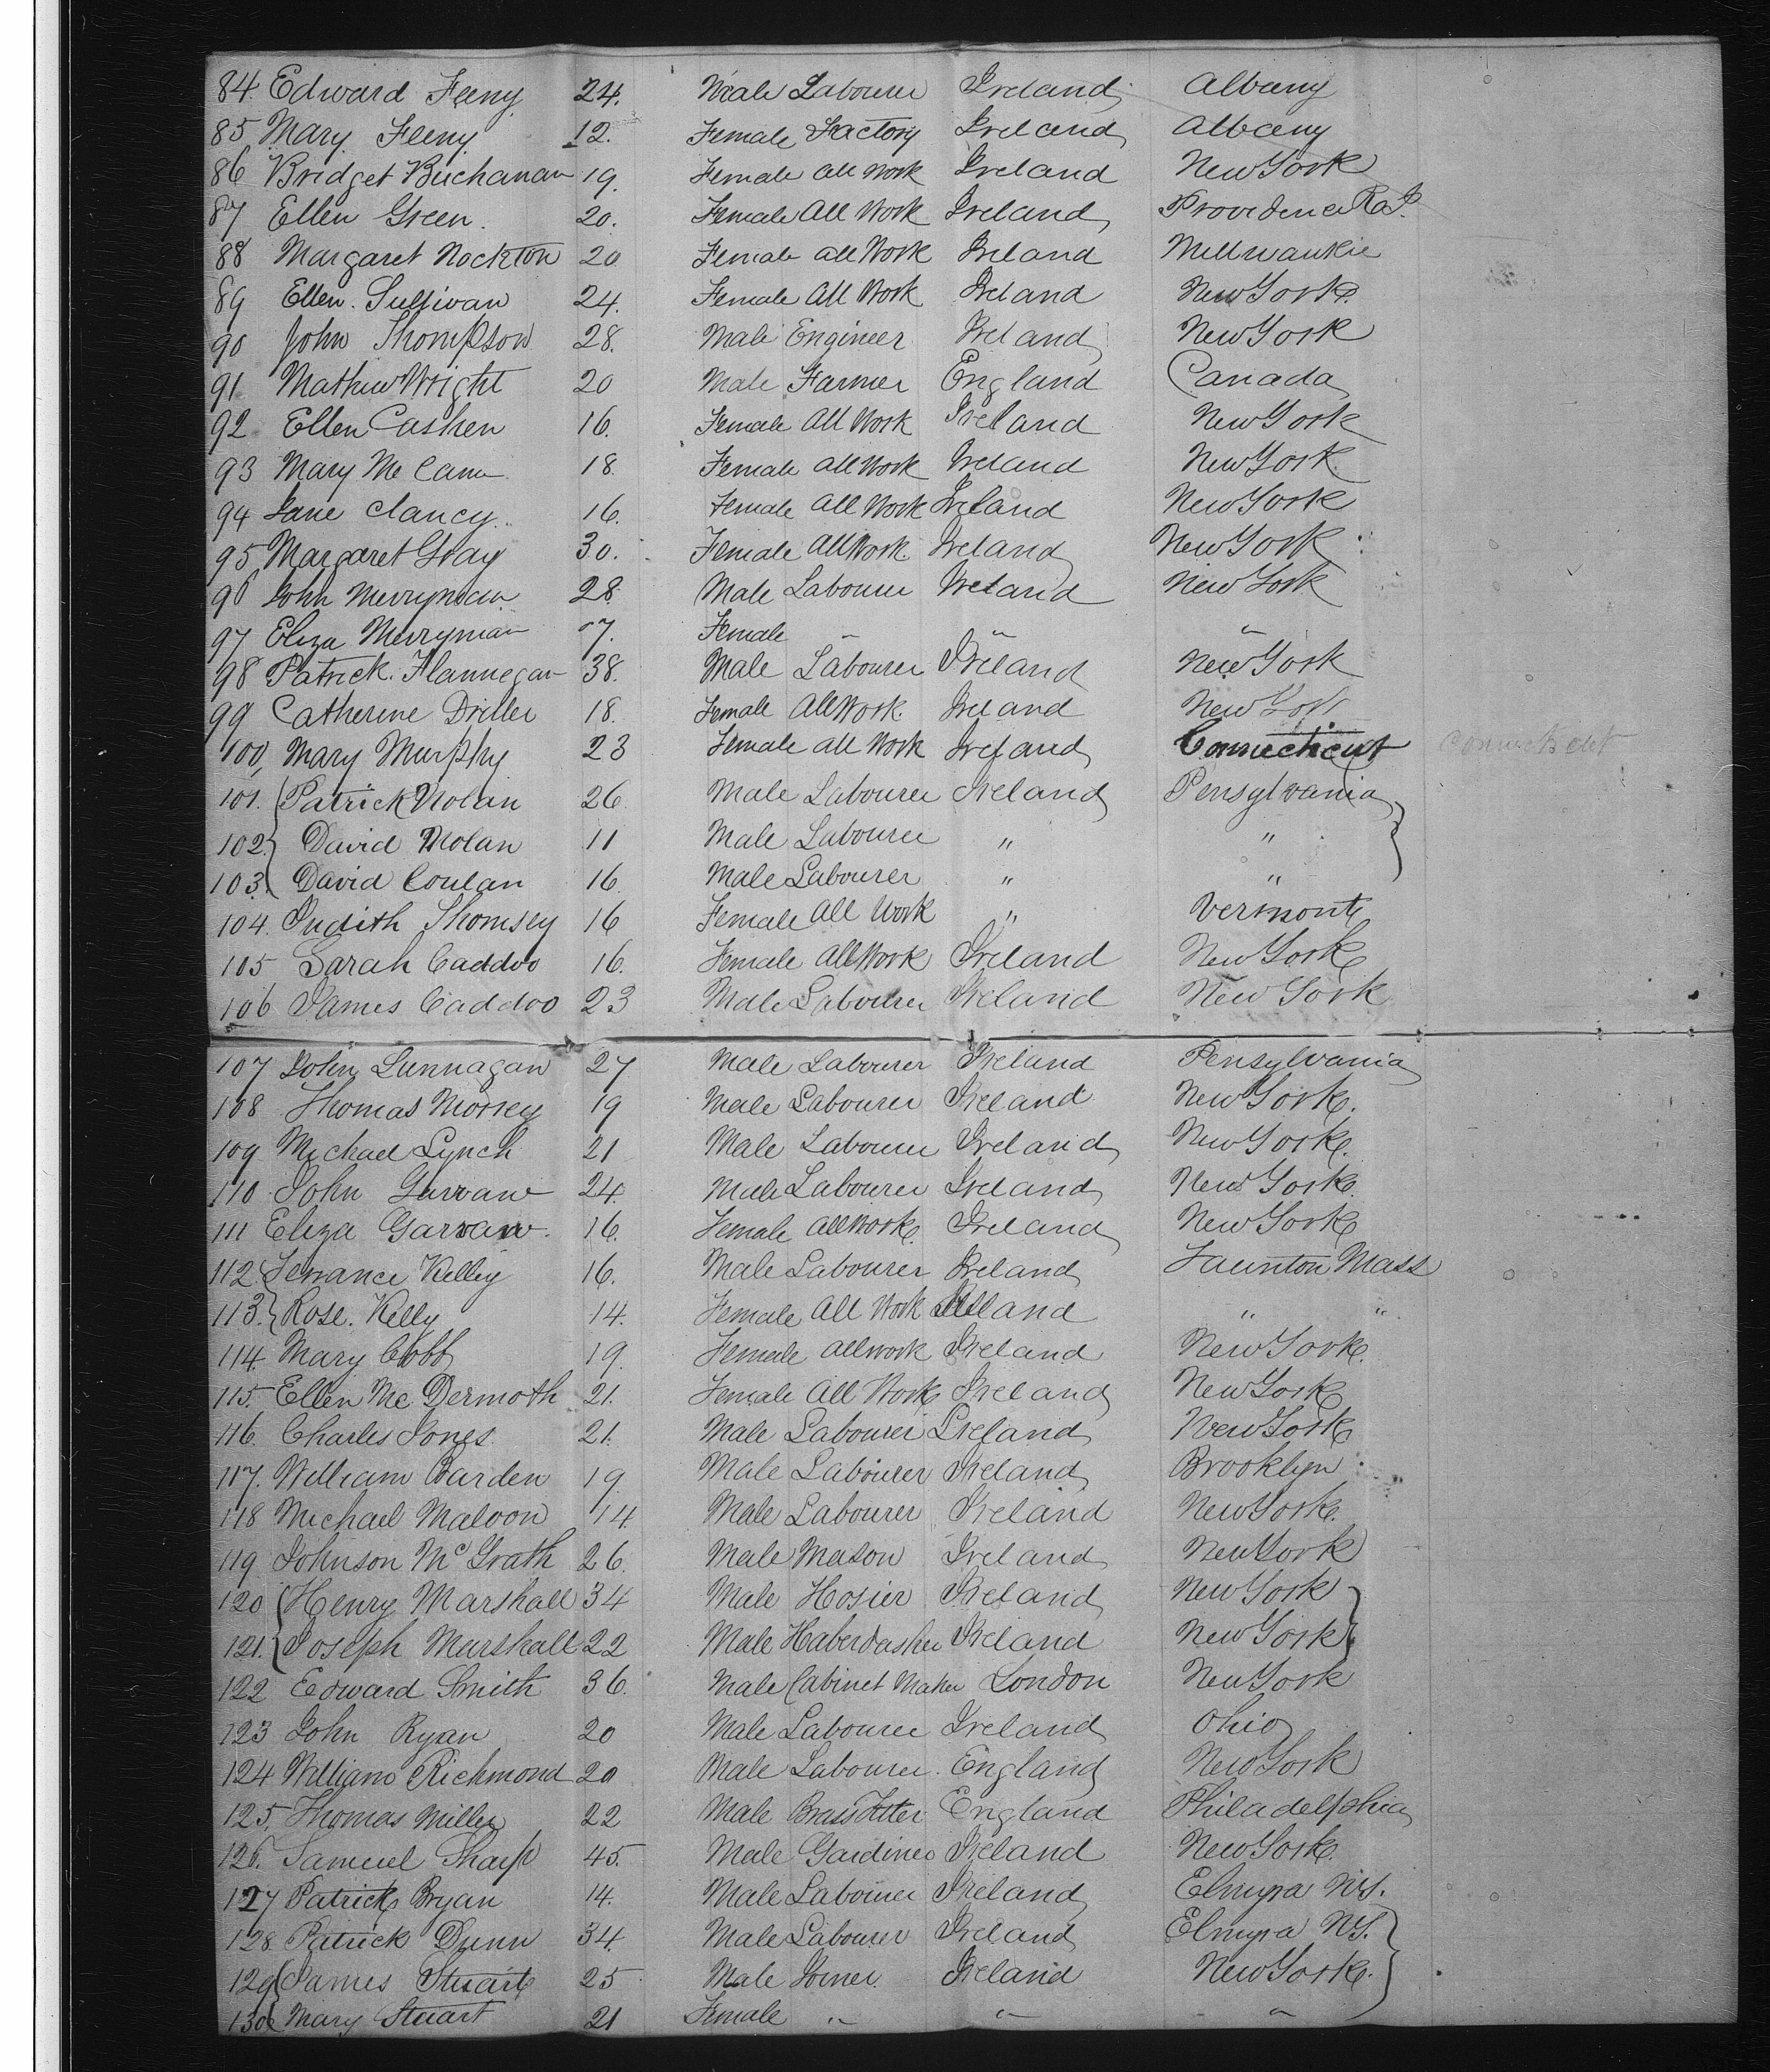 84. Edward Feeny 24. Male Labourer Ireland Albany
85 Mary Feeny 12. Female Factory Ireland Albany
86 Bridget Buchanan 19. Female All Work Ireland New York
87 Ellen Green. 20. Female All Work Ireland Providence R.I.
88 Margaret Nockton 20 Female All Work Ireland Millwaukie
89 Ellen. Sullivan 24. Female All Work Ireland New York
90 John Thompson 28. Male Engineer Ireland New York
91 Mathew Wright 20 Male Farmer England Canada
92 Ellen Cashen 16. Female All Work Ireland New York
93 Mary Mc Cann 18. Female All Work Ireland New York
94 Jane Clancy. 16. Female All Work Ireland New York
95 Margaret Gray 30. Female All Work Ireland New York
96 John Merryman 28. Male Labourer Ireland New York
97 Eliza Merryman 7. Female " " "
98 Patrick. Flannegan 38. Male Labourer Ireland New York
99 Catherine Driller 18. Female All Work. Ireland New York
100, Mary Murphy 23 Female All Work Ireland Connecticut Connecticut
101. Patrick Nolan 26 Male Labourer Ireland Pensylvania
102. David Nolan 11 Male Labourer " "
103. David Conlan 16 Male Labourer " "
104. Judith Thomsey 16 Female All Work " Vermont
105 Sarah Caddoo 16. Female All Work Ireland New York
106 James Caddoo 23 Male Labourer Ireland New York
107 John Lunnagan 27 Male Labourer Ireland Pensylvania
108 Thomas Morrey 19 Male Labourer Ireland New York.
109 Michael Lynch 21 Male Labourer Ireland New York.
110 John Garvan 24. Male Labourer Ireland New York.
111 Eliza Garvan. 16. Female All Work Ireland New York
112 Terrance Kelley 16. Male Labourer Ireland Taunton Mass
113. Rose. Kelly 14. Female All Work Ireland " "
114. Mary Cobb 19. Female All Work Ireland New York.
115. Ellen Mc Dermoth 21. Female All Work Ireland New York
116. Charles Jones 21. Male Labourer Ireland New York
117. William Barden 19. Male Labourer Ireland Brooklyn
118 Michael Maloon 14 Male Labourer Ireland New York.
119 Johnson McGrath 26. Male Mason Ireland New York
120 Henry Marshall 34 Male Hosier Ireland New York
121. Joseph Marshall 22 Male Haberdasher Ireland New York
122 Edward Smith 36. Male Cabinet Maker London New York
123 John Ryan 20 Male Labourer Ireland Ohio
124 William Richmond 20 Male Labourer. England New York
125. Thomas Miller 22 Male Brass Fitter England Philadelphia
126. Samuel Sharp 45. Male Gardiner Ireland New York.
127 Patrick Bryan 14. Male Labourer Ireland Elmyra NY.
128 Patrick Dunn 34. Male Labourer Ireland Elmyra NY.
129 James Stuart 25 Male Joiner Ireland New York.
130 Mary Stuart 21 Female " " "